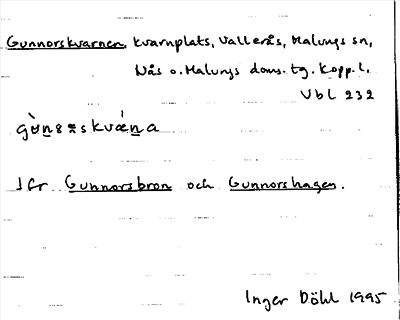 Gunnorskvarnen, kvarnplats, Vallerås, Malungs sn,
Nås o. Malungs doms. tg. Kopp. l.
Vbl 232
Jfr Gunnorsbron och Gunnorshagen.
Inger Döhl 1995